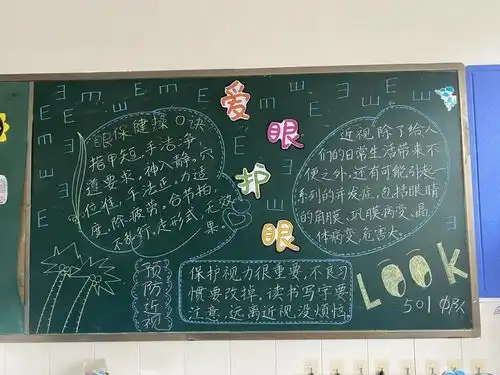 爱
眼
护
眼
眼保健操口诀
指甲短,手洁净,
遵要求,神入静。穴
位准,手法正。力适
度,除疲劳。合节拍,
不乱行。走形式,无效
果。
近视除了给人
们的日常生活带来不
便之外,还有可能引发一
系列的并发症,包括眼睛
的角膜、巩膜病变、晶
体病变,危害大。
预
防
近
视
保护视力很重要,不良习
惯要改掉。读书写字要
注意,远离近视没烦恼。
LOOK
501中队